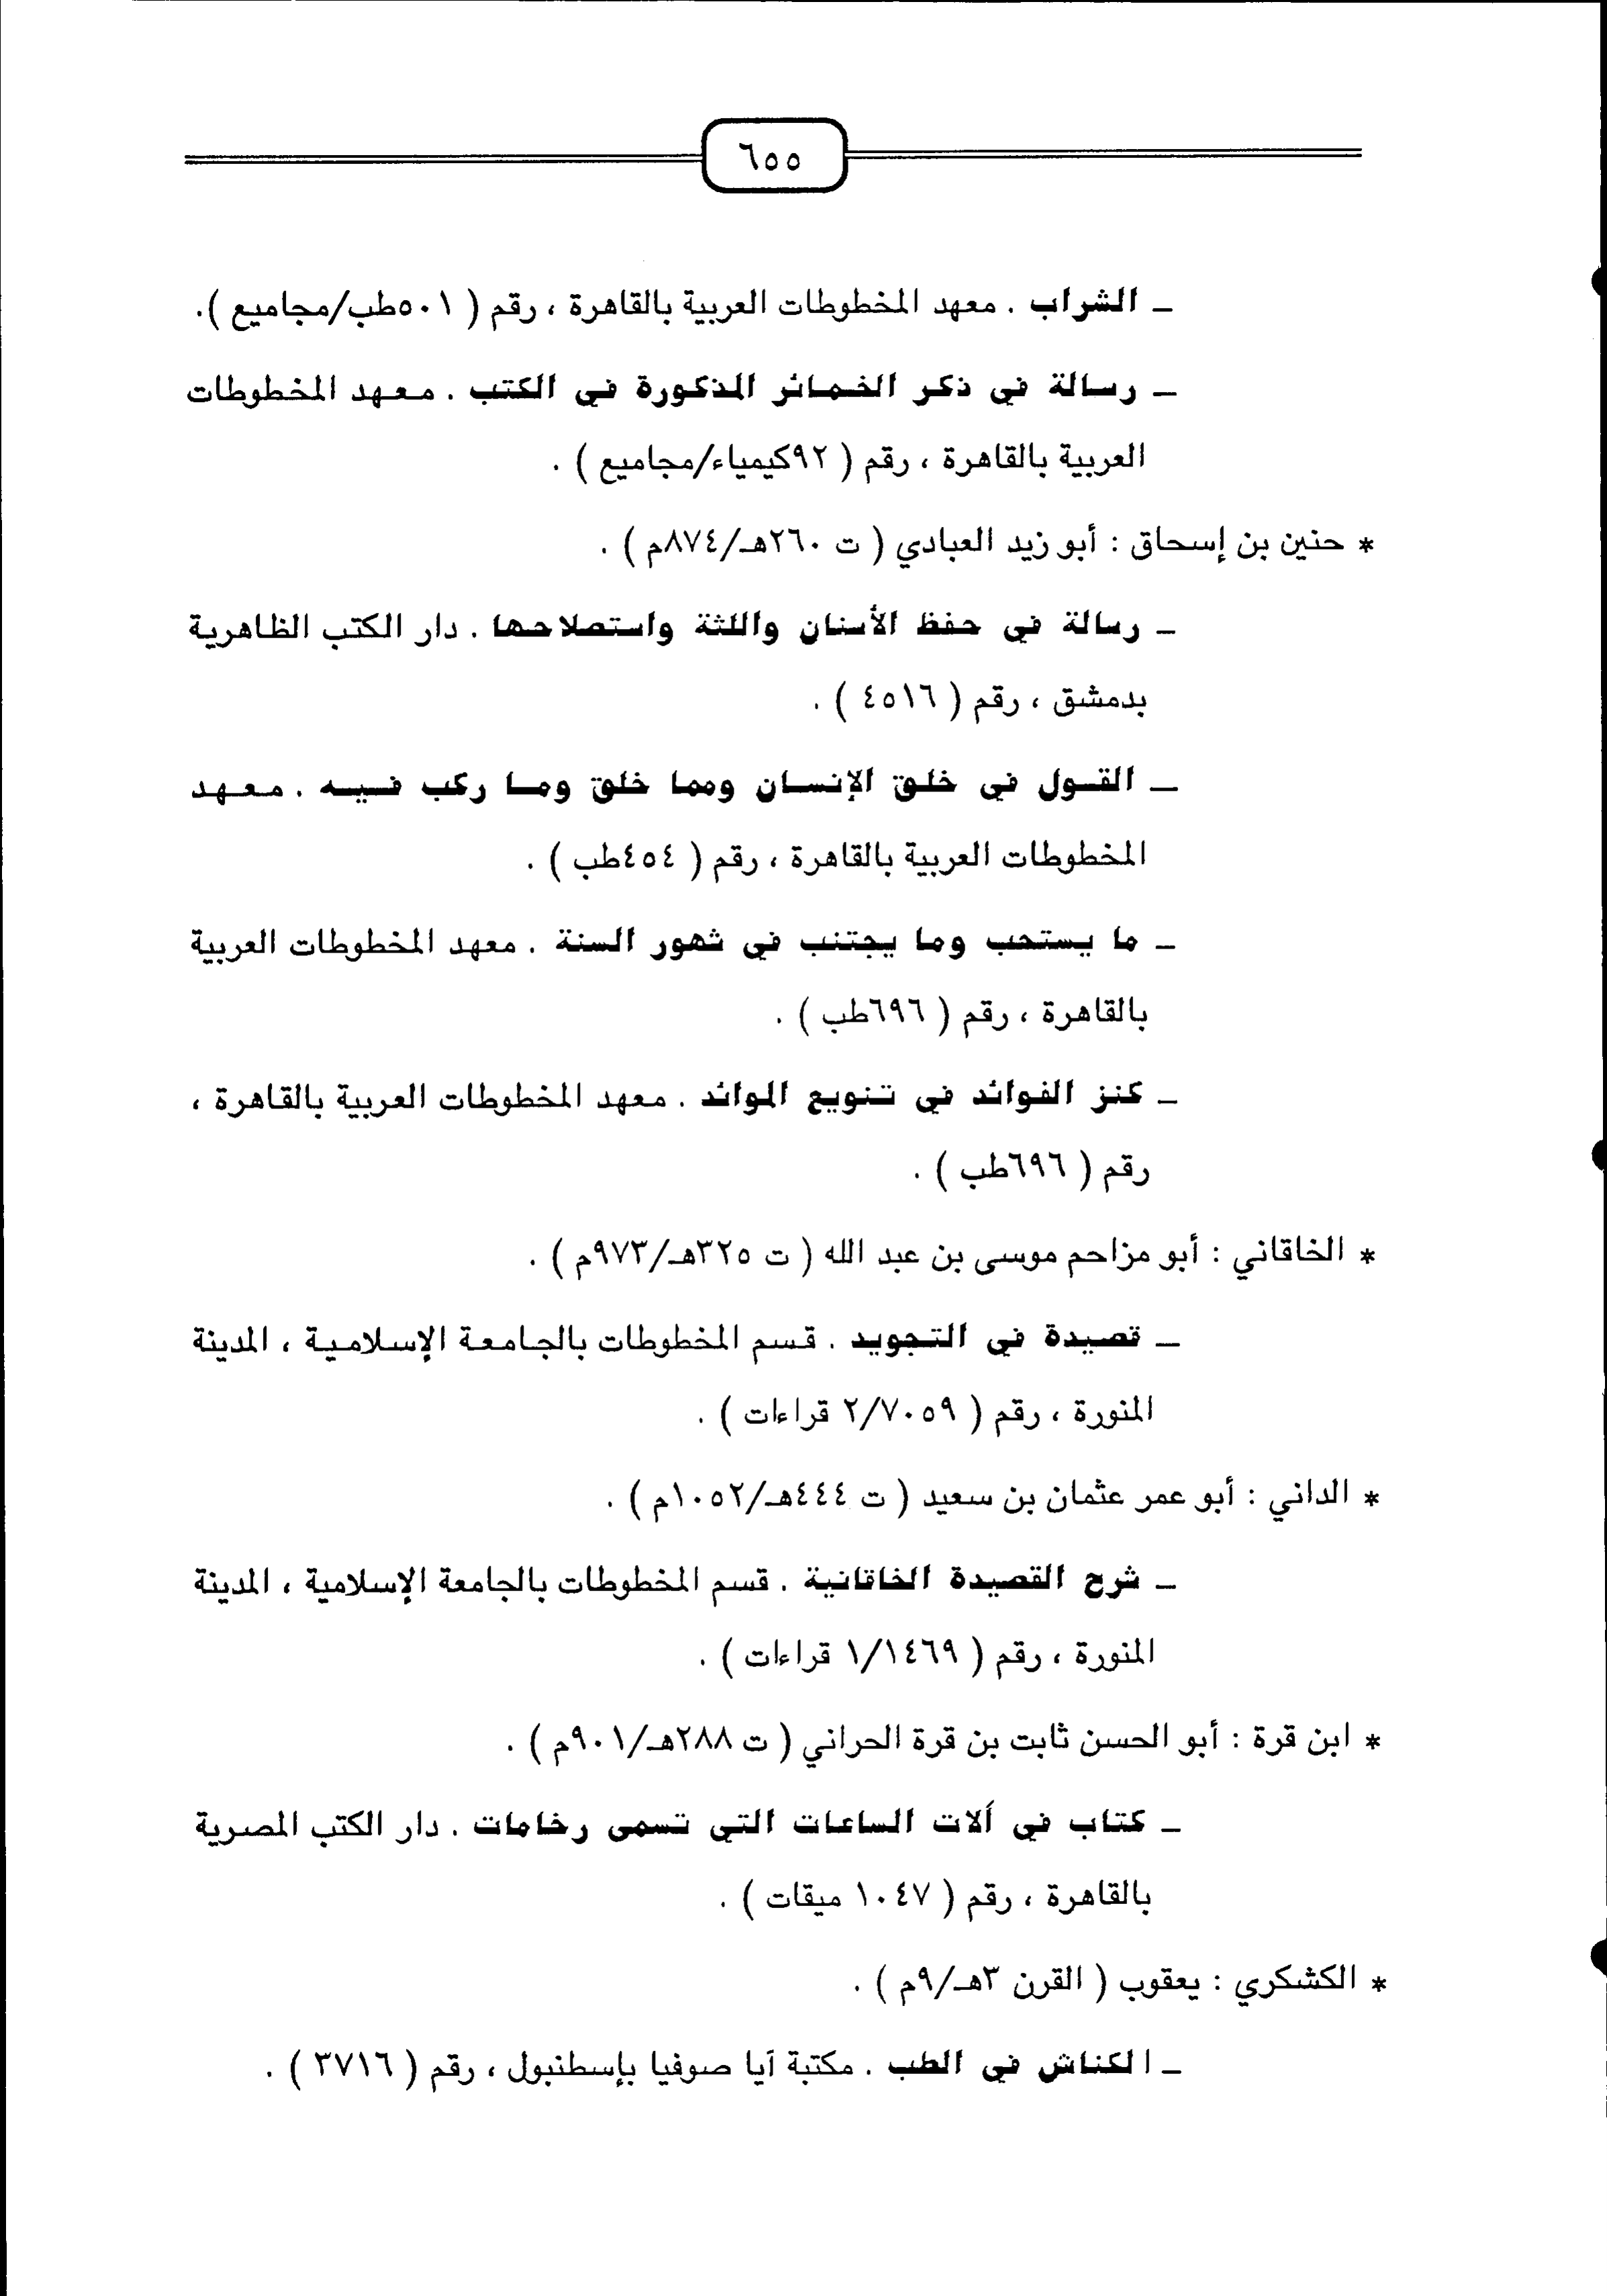 ٦٥٥
ـ الشراب . معهد المخطوطات العربية بالقاهرة ، رقم ( ٥٠١طب/مجاميع ).
ـ رسالة في ذكر الخمائر المذكورة في الكتب . معهد المخطوطات
العربية بالقاهرة ، رقم ( ٩٢كيمياء/مجاميع ) .
* حنين بن إسحاق : أبو زيد العبادي ( ت ٢٦٠هـ/٨٧٤م ) .
ـ رسالة في حفظ الأسنان واللثة واستصلاحها . دار الكتب الظاهرية
بدمشق ، رقم ( ٤٥١٦ ) .
ـ القول في خلق الإنسان ومما خلق وما ركب فيه . معهد
المخطوطات العربية بالقاهرة ، رقم ( ٤٥٤طب ) .
ـ ما يستحب وما يجتنب في شهور السنة . معهد المخطوطات العربية
بالقاهرة ، رقم ( ٦٩٦طب ) .
ـ كنز الفوائد في تنويع الموائد . معهد المخطوطات العربية بالقاهرة ،
رقم ( ٦٩٦طب ) .
* الخاقاني : أبو مزاحم موسى بن عبد الله ( ت ٣٢٥هـ/٩٧٣م ) .
ـ قصيدة في التجويد . قسم المخطوطات بالجامعة الإسلامية ، المدينة
المنورة ، رقم ( ٢/٧٠٥٩ قراءات ) .
* الداني : أبو عمر عثمان بن سعيد ( ت ٤٤٤هـ/١٠٥٢م ) .
ـ شرح القصيدة الخاقانية . قسم المخطوطات بالجامعة الإسلامية ، المدينة
المنورة ، رقم ( ١/١٤٦٩ قراءات ) .
* ابن قرة : أبو الحسن ثابت بن قرة الحراني ( ت ٢٨٨هـ/٩٠١م ) .
ـ كتاب في آلات الساعات التي تسمى رخامات . دار الكتب المصرية
بالقاهرة ، رقم ( ١٠٤٧ ميقات ) .
* الكشكري : يعقوب ( القرن ٣هـ/٩م ) .
ـ الكناش في الطب . مكتبة آيا صوفيا بإسطنبول ، رقم ( ٣٧١٦ ) .